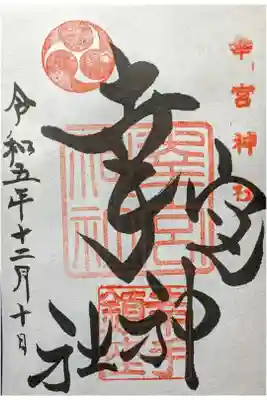 幸宮神社
幸宮神社
令和五年十二月十日